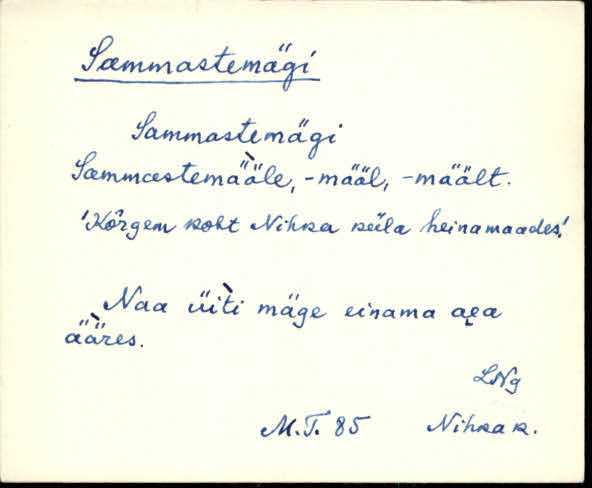 Sammastemägi
Sammastemägi
Sammastemää̀le, -määl, -mäält.
'Kõrgem koht Nihka küla heinamaades.'
Naa üìti mäge einama aea
ää̀res.
LNg
M.T. 85 Nihka k.